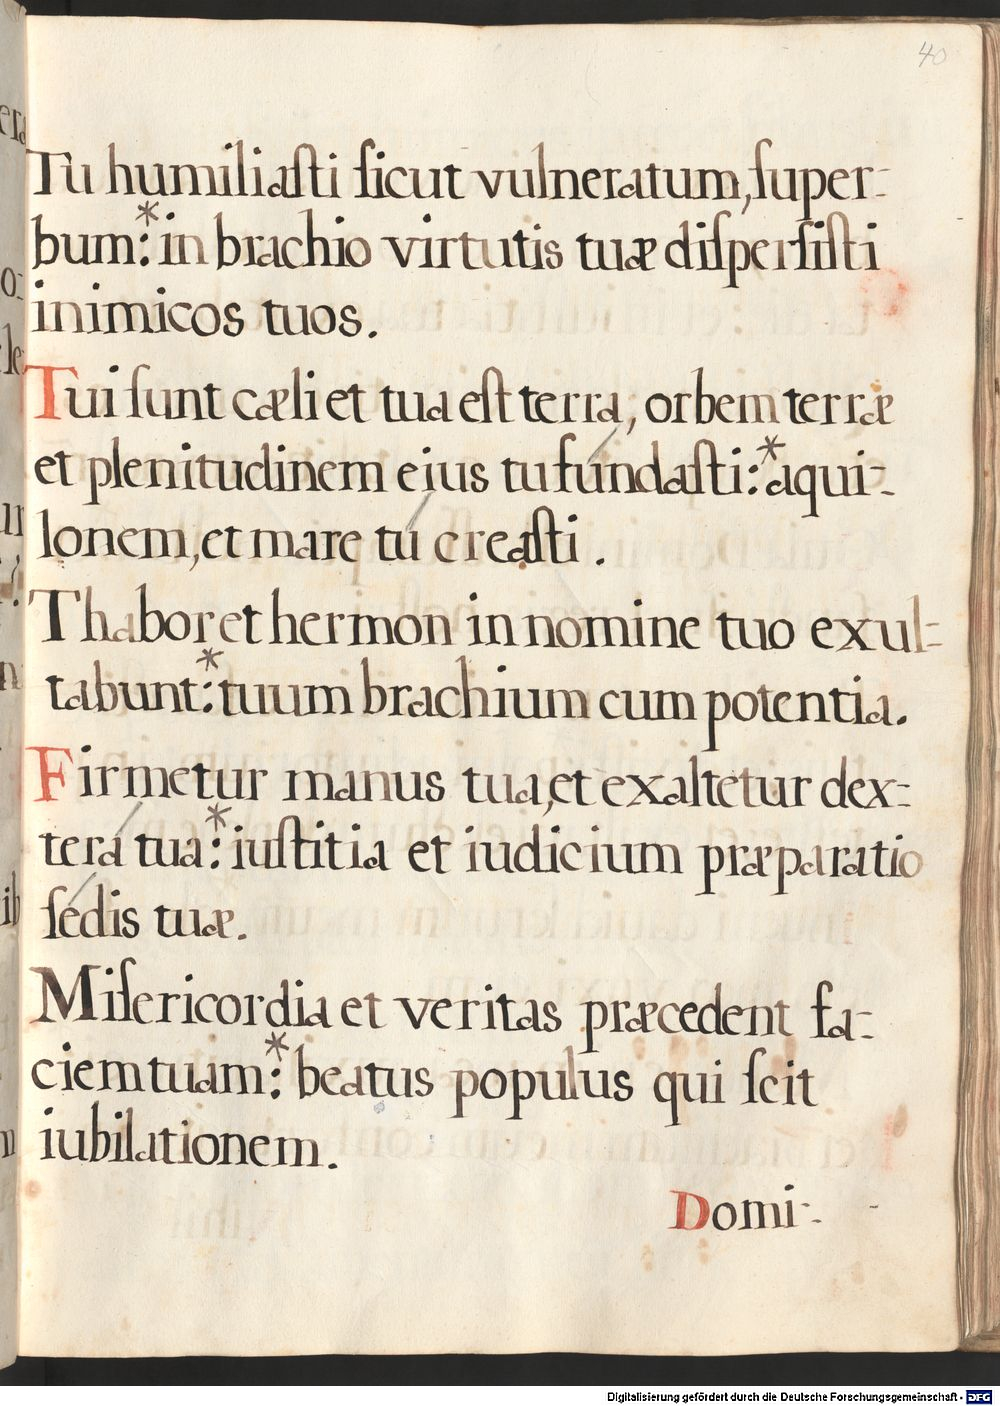 40
Tu humiliaſti ſicut vulneratum, ſuper-
bum:* in brachio virtutis tuæ diſperſiſti
inimicos tuos.
Tui ſunt cæli et tua eſt terra, orbem terræ
et plenitudinem eius tu fundaſti:* aqui-
lonem, et mare tu creaſti.
Thabor et hermon in nomine tuo exul-
tabunt:* tuum brachium cum potentia.
Firmetur manus tua, et exaltetur dex-
tera tua:* iuſtitia et iudicium præparatio
ſedis tuæ.
Miſericordia et veritas præcedent fa-
ciem tuam:* beatus populus qui ſcit
iubilationem.
Domi-
Digitalisierung gefördert durch die Deutsche Forschungsgemeinschaft - DFG